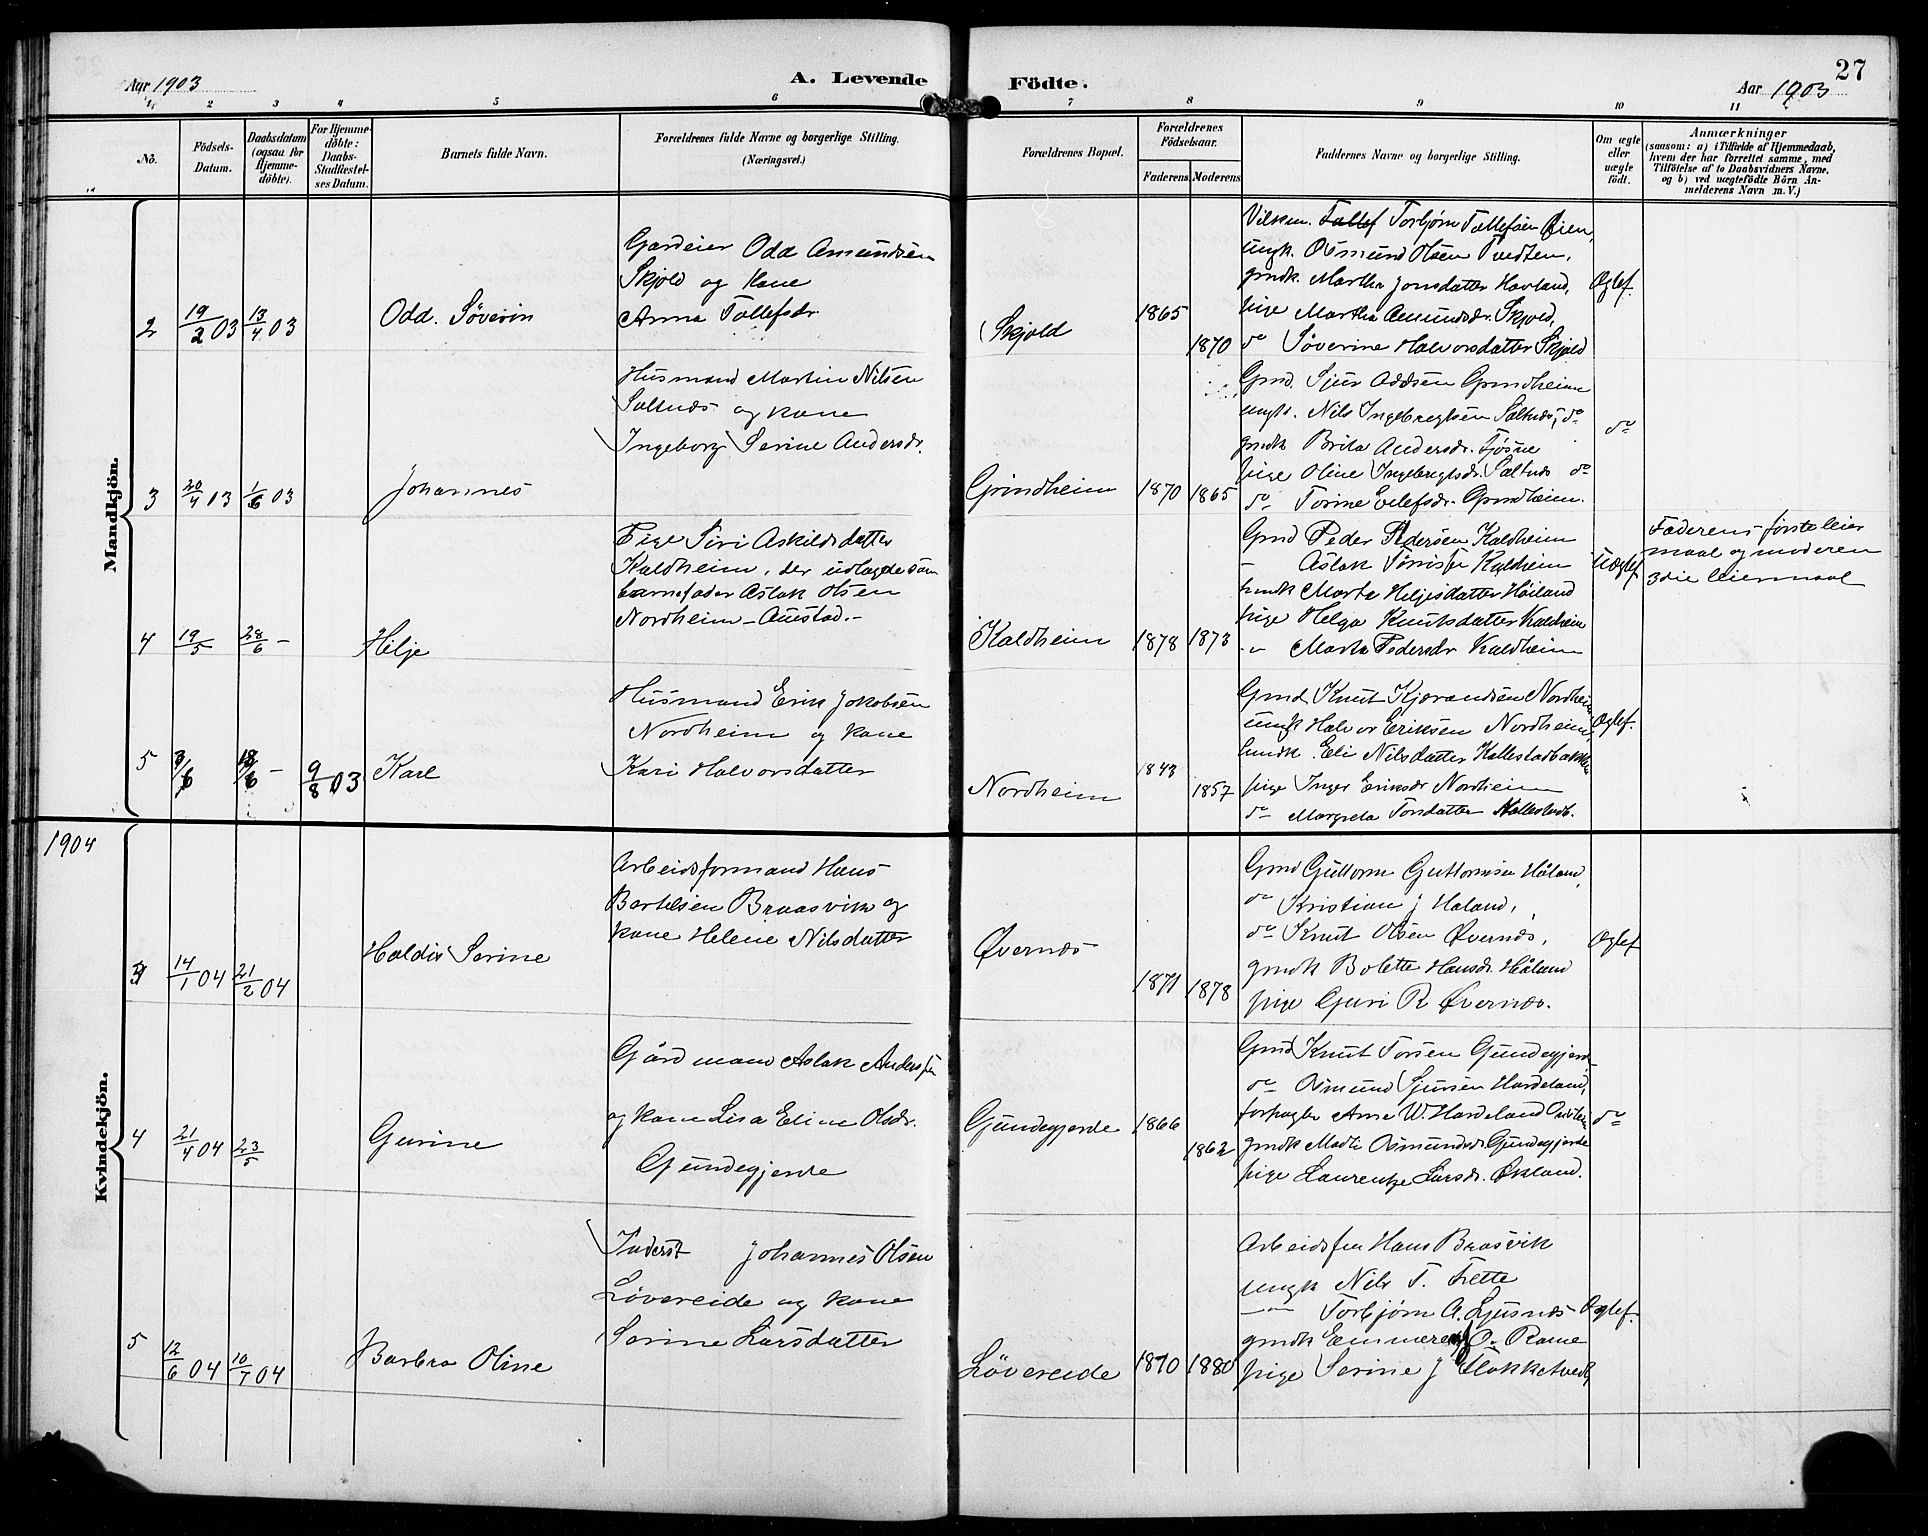 27
Aar 1903
A. Levende
Födte.
Aar 1903
1. 2 3 4 5 6 7 8 9 10 11
No.
Födsels-
Datum.
Daabsdatum
(ogsaa for
Hjemme-
döbte).
For Hjemme-
döbte:
Daabs-
Stadfæstel-
ses Datum.
Barnets fulde Navn.
Forældrenes fulde Navne og borgerlige Stilling.
(Næringsvei.)
Forældrenes Bopæl.
Forældrenes
Födselsaar.
Faderens
Moderens
Faddernes Navne og borgerlige Stilling.
Om ægte
eller
uægte
födt.
Anmærkninger
(saasom: a) i Tilfælde af Hjemmedaab,
hvem der har forrettet samme, med
Tilföielse af to Daabsvidners Navne,
og b) ved uægtefödte Börn An-
melderens Navn m. V.)
Mandkjön.
2
19/2 03
13/4 03
Odd. Søverin
Gardeier Odd Amundsen
Skjold og kone
Anna Tollefsdr
Skjold
1865
1870
Torbjørn Tollefsen Øien,
ungk. Osmund Olsen Tvedten,
gmdk. Martha Jonsdatter Havland,
pige Martha Amundsdr. Skjold,
do Søverine Halvorsdatter Skjold
Ægtef.
3
20/4 03
1/6 03
Johannes
Husmand Martin Nilsen
Saltnæs og kone
Ingeborg Serine Andersdr.
Grindheim
1870
1865
Gmd. Sjur Oddsen Grindheim
ungk. Nils Ingebregtsen Saltnæs, do
gmdk Brita Andersdr. Tjøsne
pige Oline Ingebregtsdr. Saltnæs do
do Torine Eilefsdr. Grindheim.
do
4
19/5
28/6 –
Hilje
Pige Siri Askildsdatter
Kaldheim, der udlagde som
barnefader Aslak Olsen
Nordheim – Austad. –
Kaldheim
1878
1873
Gmd Peder Pedersen Kaldheim
– Aslak Tørrisen Kaldheim
Marta Heljesdatter Høiland
pige Helga Knutsdatter Kaldheim
– Marta Pedersdr Kaldheim
Uægtef
Faderens første leier
maal og moderen
3die leiermaal
5
Karl
9/8 03
Husmand Erik Jakobsen
Nordheim og kone
Kari Halvorsdatter
Nordheim
1843
1857
Gmd Knut Kjærandsen Nordheim
ungk Halvor Eriksen Nordheim,
Eli Nilsdatter Kallestadbakken
pige Inger Eriksdr Nordheim
do Margreta Torsdatter Kallestadb.
Ægtef.
1904
Kvindekjön.
3
14/1 04
21/2 04
Haldis Serine
Arbeidsformand Hans
Bertelsen Braasvik og
kone Helene Nilsdatter
Øvernæs
1871
1878
Gmd Guttorm Guttormsen Håland,
do Kristian J Håland,
do Knut Olsen Øvernæs,
gmdk Bolette Hansdr. Håland
pige Guri R Øvernæs.
Ægtef
4
21/4 04
23/5
Gurine
Gårdmand Aslak Andersen
og kone Lisa Eline Olsdr.
Gundegjerde
Gundegjerde
1866
1862
Gmd Knut Torsen Gundegjerde
do Osmund Sjursen Hardeland,
forpagter Arne W. Hardeland
gmdk Madli Osmundsdr Gundegjerde
pige Laurentze Larsdr. Økland.
do
5
12/6 04
10/7 04
Barbro Oline
Inderst Johannes Olsen
Løvereide og kone
Serine Larsdatter
Løvereide
1870
1880
Arbeidsfm Hans Braasvik
ungk Nils T. Frette
– Torbjørn A. Ljusnæs
gmdk O. Rame
pige Serine J Flokketvedt
Ægtef.